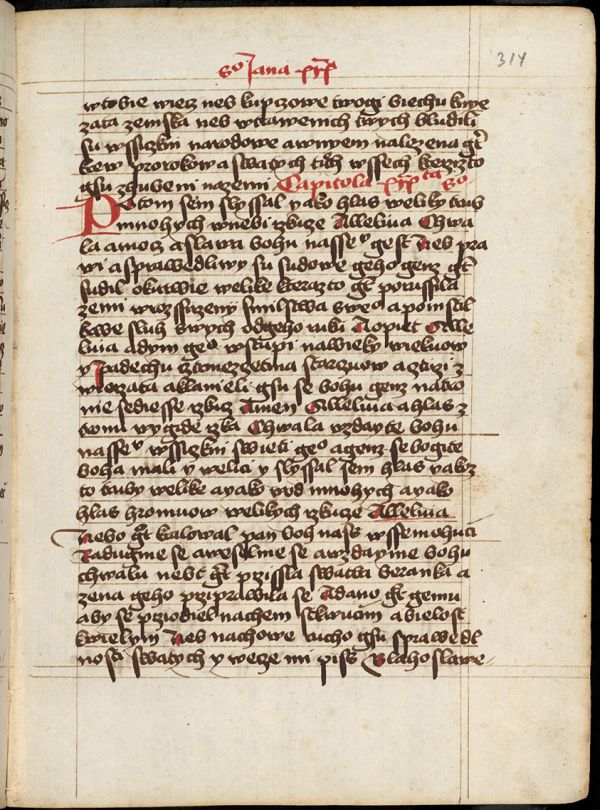 So Jana XIX
314
w tobie wiecz neb kupczowe twogi biechu knye
zata zemska neb w trawenich twych bludili
su wssiczkni narodowe a w nyem nalezena gt
krew prorokow a swatych tich wssech kterizto
gsu zgubeni na zemi Capitola XIX ta so
Potom sem slyssal yako hlas weliky trub
mnohych w nebi rzkuze Alleluia Chwa
la a mocz a slawa bohu nassemu gest Neb pra
wi a sprawedliwy su sudowe geho genz gt
sudil o kurwie welike kterazto gt porussila
zemi w rozssirzeny smilstwa sweo a pomstil
krwe sluh swych od geho ruki A opiet Alle
luia a dym geo wstupi na wieky wiekuow
y padechu cztmezczietma starzuow a cztirzi z
wierzata a klanieli gsu se bohu genz na tro
nie sediesse rzkuz Amen Alleluia a hlas z
tronu wygide rzka Chwala wzdayte bohu
nassemu wssiczkni swieti geo a genz se bogite
boha mali y welici y slyssal sem hlas yakz
to truby welike a yako wod mnohych a yako
hlas hromuow welikych rzkuze Alleluia
Nebo gt kralowal pan boh nass wssemohuci
Radugme se a weselme se a wzdayme bohu
chwalu nebt gt przissla swatba beranka a
zena geho prziprawila se A dano gt gemu
aby se prziodiel nachem stkwucim a bielost
kwielym Neb nachowe rucho gsu sprawedl
nosti swatych y wecze mi piss Blahoslawe-